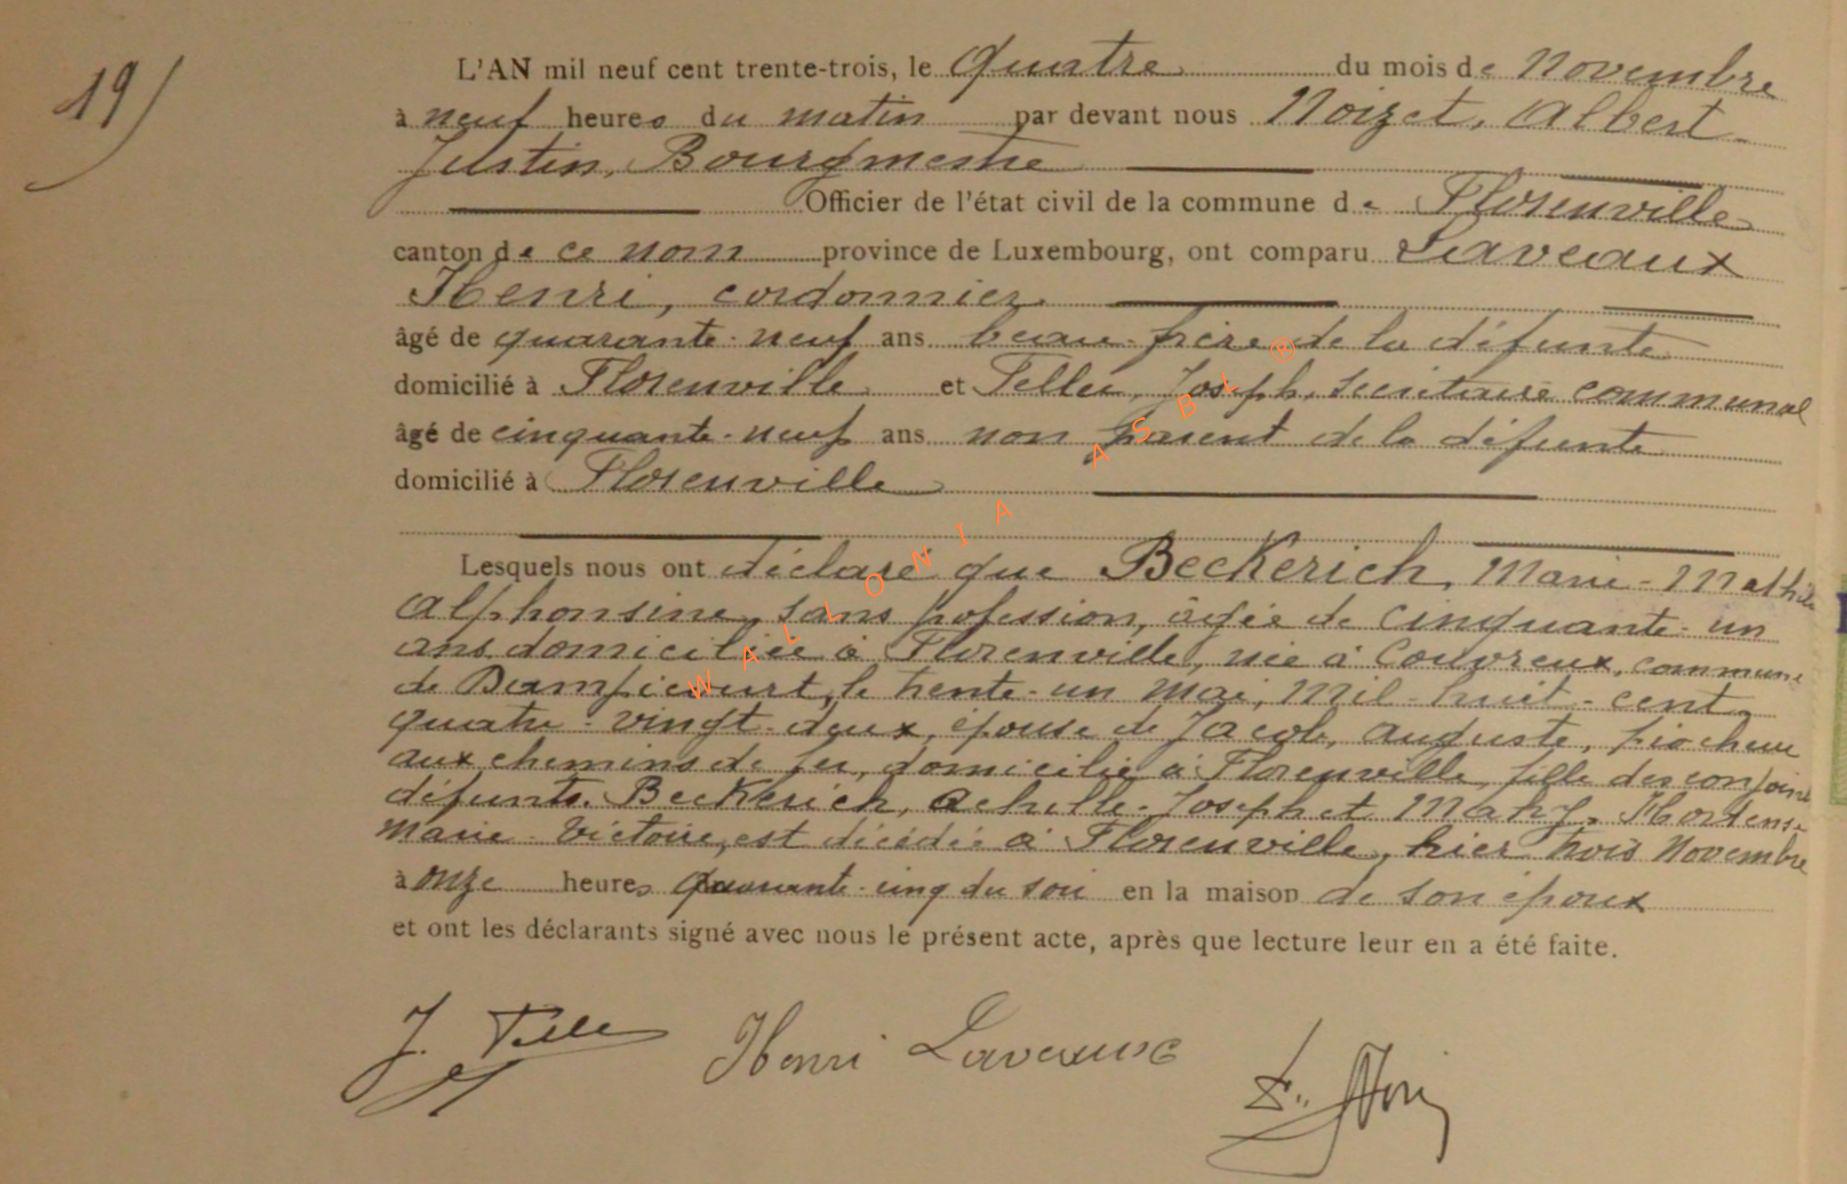 19)
L'AN mil neuf cent trente-trois, le Quatre du mois de Novembre
à neuf heures du matin par devant nous Noizet, Albert
Justin, Bourgmestre
Officier de l'état civil de la commune de Florenville
canton de ce nom province de Luxembourg, ont comparu Laveaux
Henri, cordonnier
âgé de quarante-neuf ans beau-frère de la défunte
domicilié à Florenville et Teller, Joseph, secrétaire communal
âgé de cinquante-neuf ans non parent de la défunte
domicilié à Florenville
Lesquels nous ont déclaré que Beckerich, Marie-Mathilde
Alphonsine, sans profession, âgée de cinquante-un
ans domiciliée à Florenville, née à Couvreux, commune
de Dampicourt, le trente-un Mai, mil-huit-cent
quatre-vingt-deux, épouse de Jacob, Auguste, piocheur
aux chemins de fer, domicilié à Florenville, fille des conjoints
défunts Beckerich, Achille-Joseph et Mahy, Hortense
Marie-Victoire, est décédée à Florenville, hier trois Novembre
à onze heures quarante-cinq du soir en la maison de son époux
et ont les déclarants signé avec nous le présent acte, après que lecture leur en a été faite.
J. Teller Henri Laveaux
WALLONIA ASBL ®